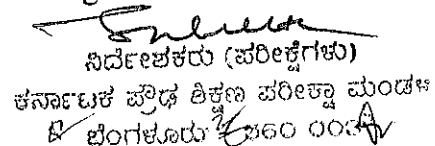 ನಿರ್ದೇಶಕರು (ಪರೀಕ್ಷೆಗಳು)
ಕರ್ನಾಟಕ ಪ್ರೌಢ ಶಿಕ್ಷಣ ಪರೀಕ್ಷಾ ಮಂಡಳಿ
ಬೆಂಗಳೂರು 560